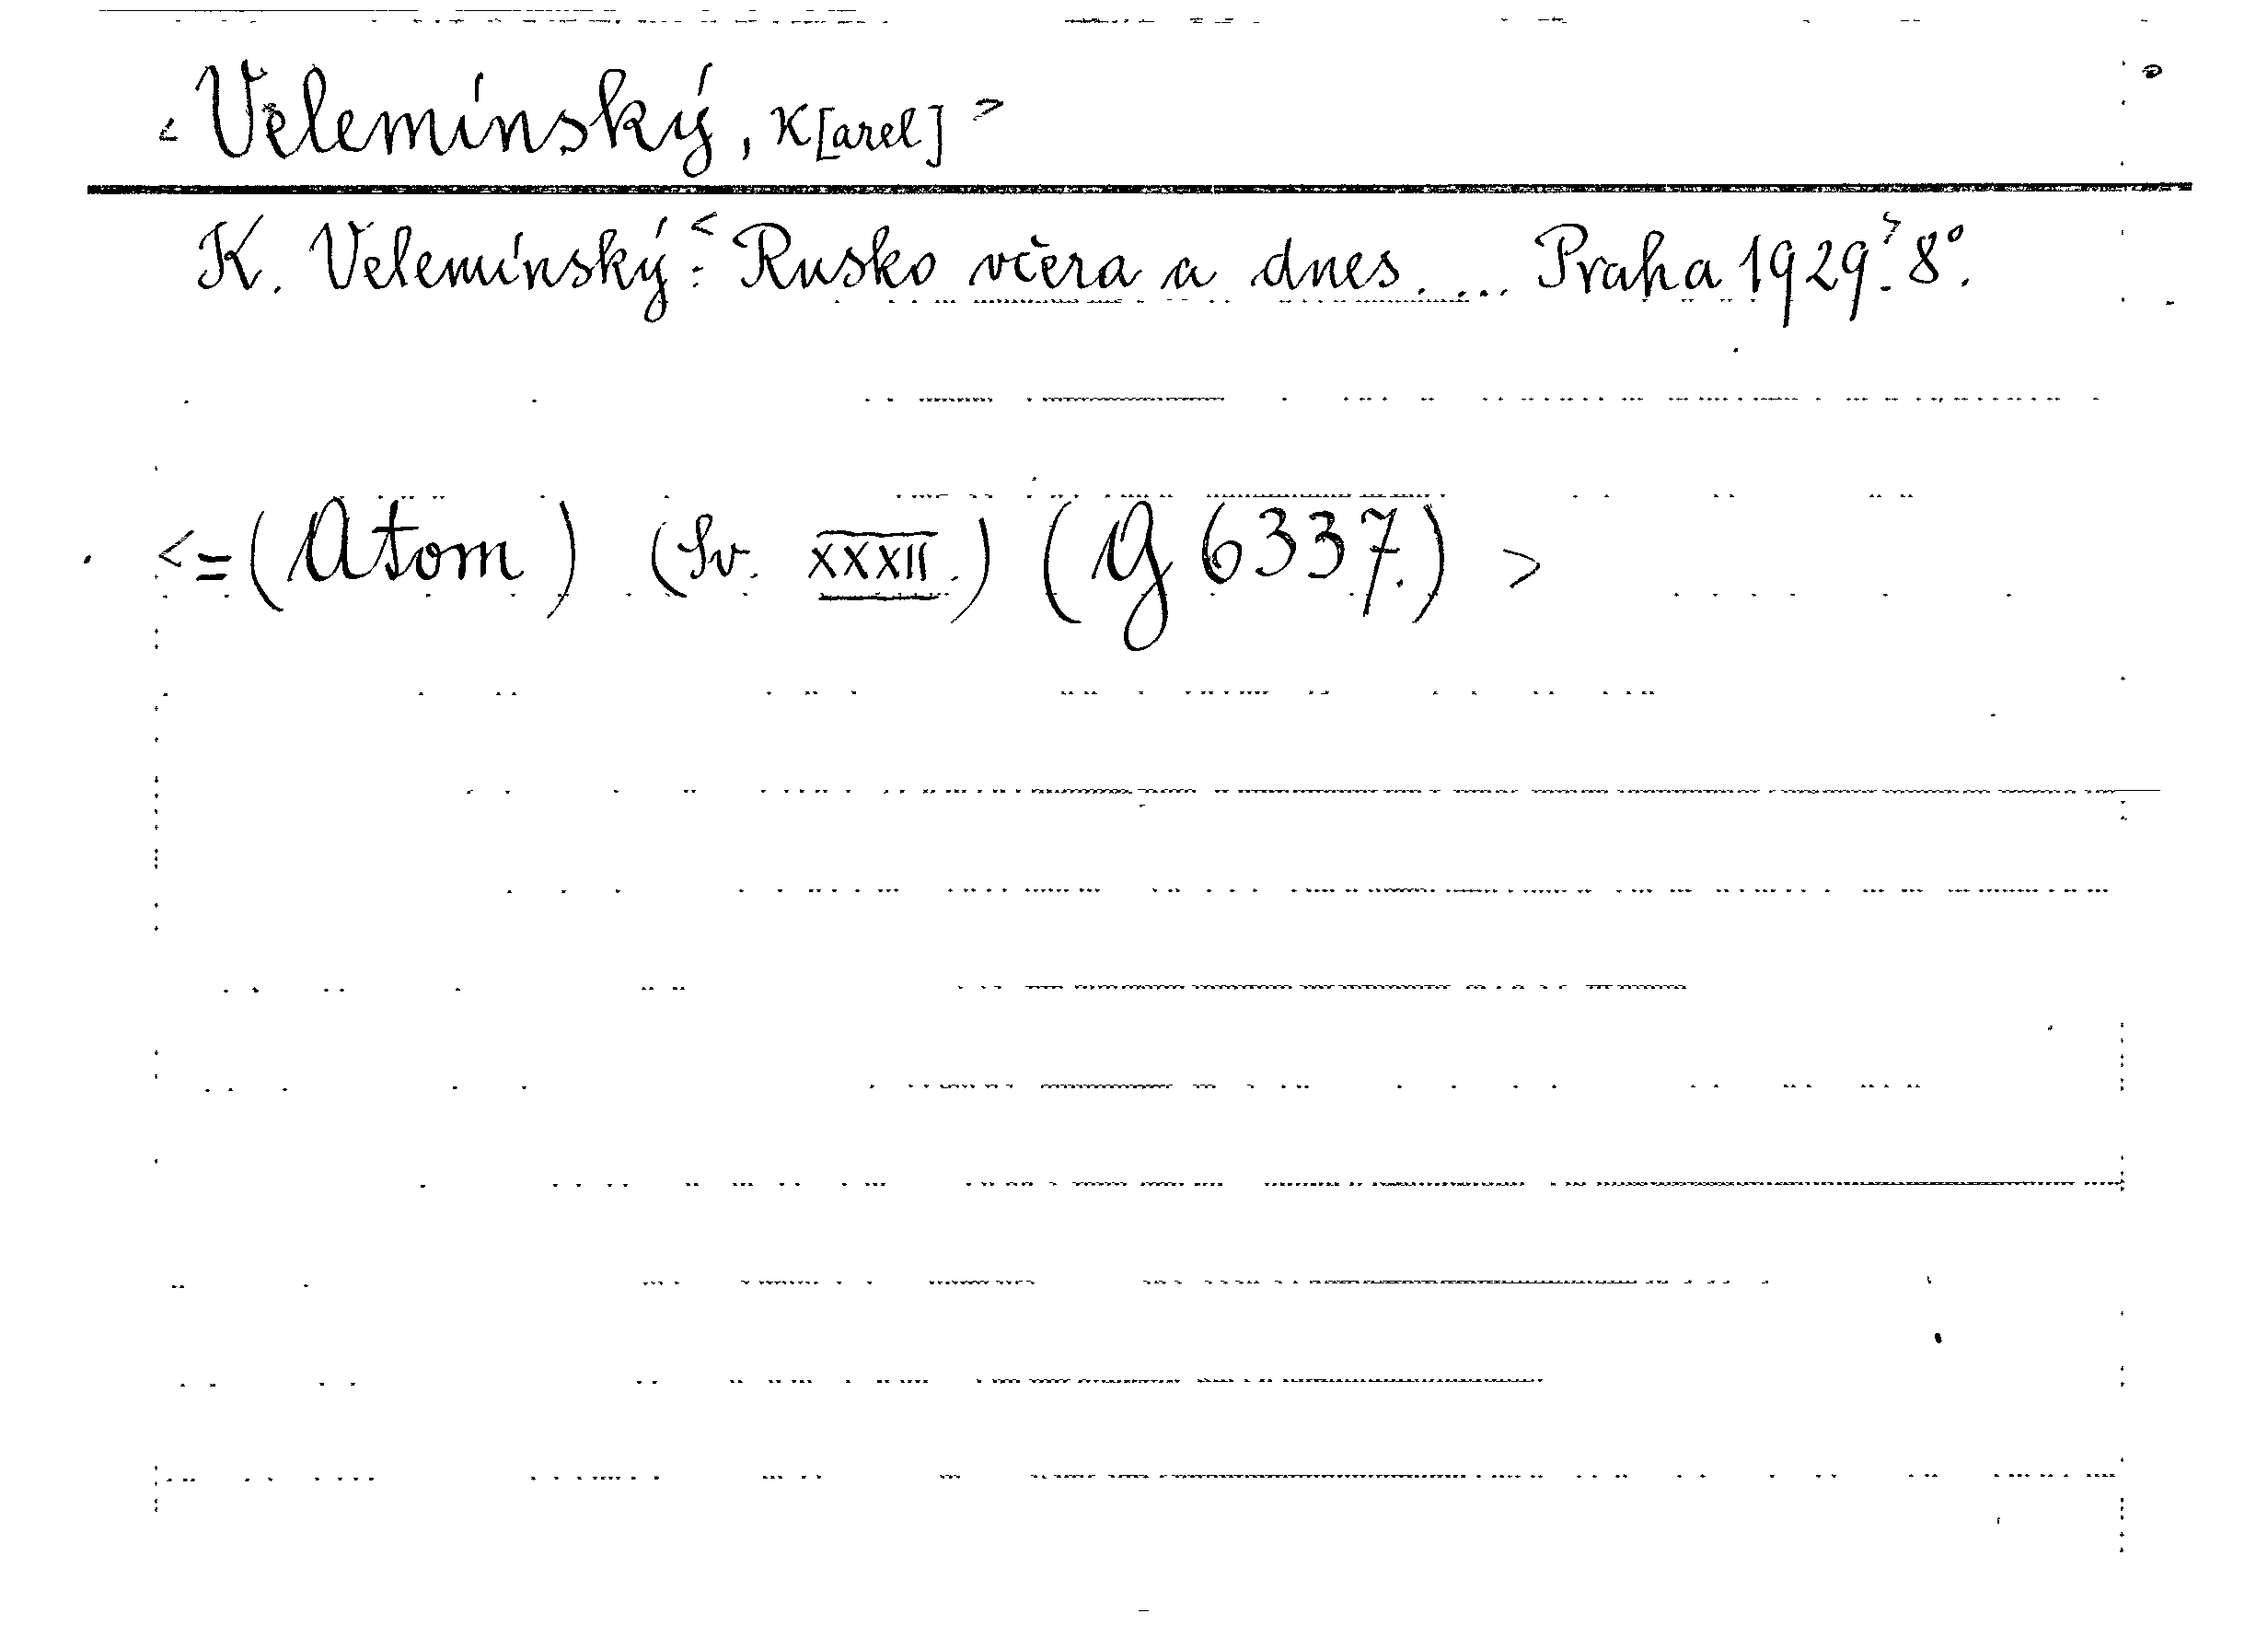 < Velemínský, K[arel] >
K. Velemínský: < Rusko včera a dnes. ... Praha 1929. > 8°.
<=(Atom) (Sv. XXXII.) (G 6337.) >